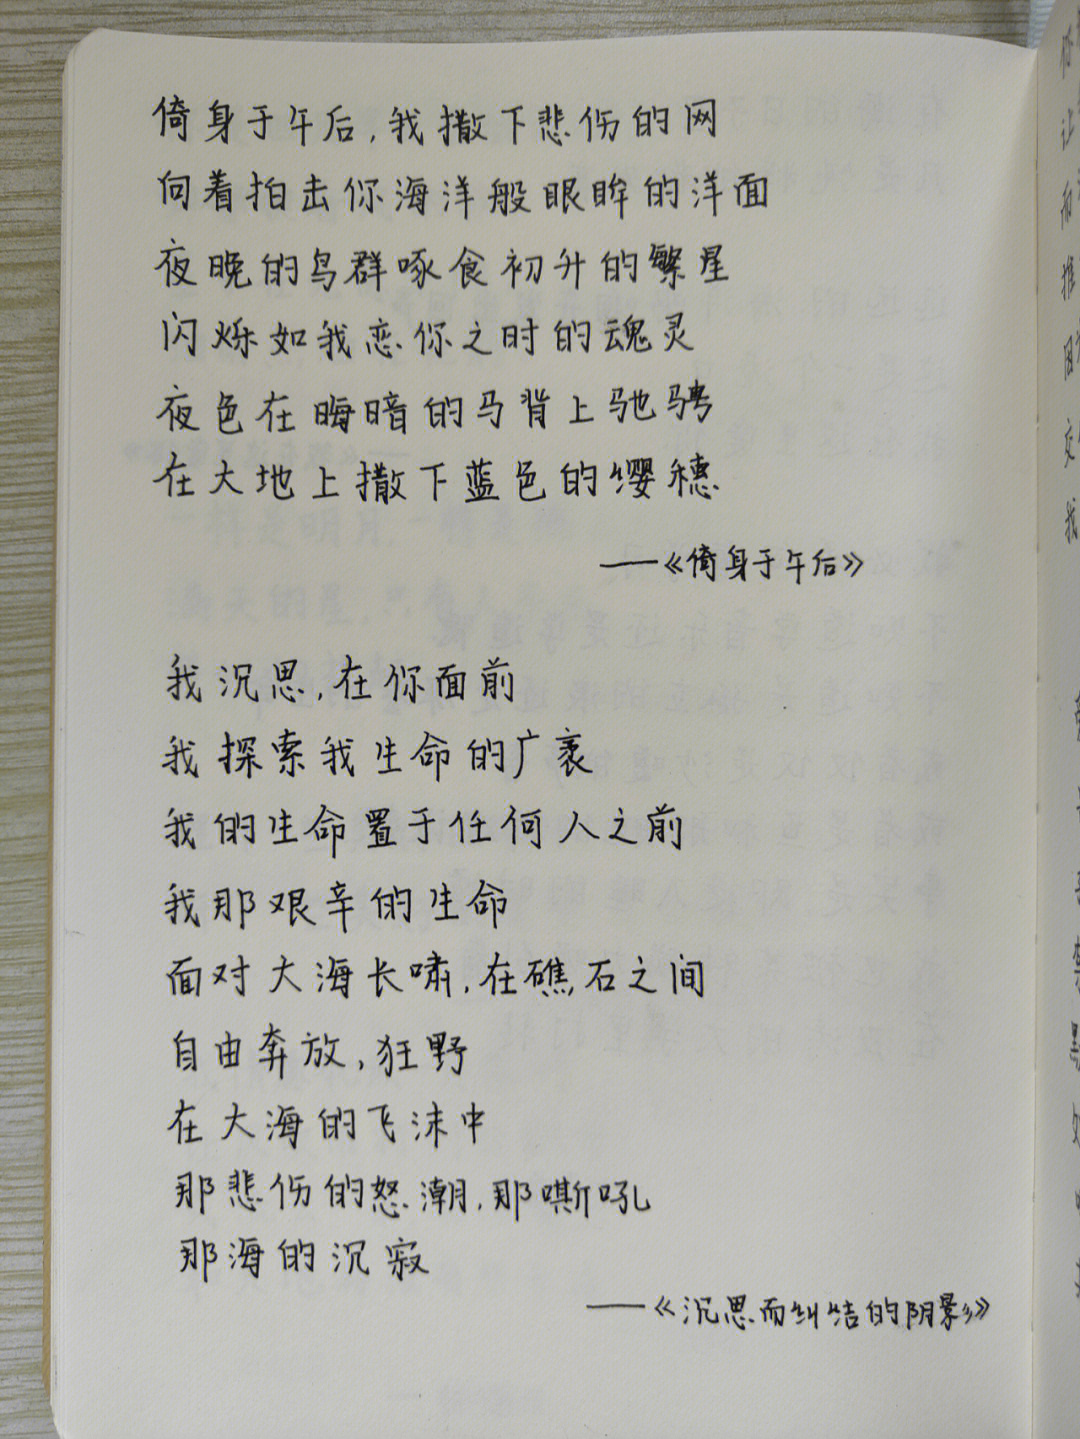 倚身于午后,我撒下悲伤的网
向着拍击你海洋般眼眸的洋面
夜晚的鸟群啄食初升的繁星
闪烁如我恋你之时的魂灵
夜色在晦暗的马背上驰骋
在大地上撒下蓝色的缨穗
——《倚身于午后》
我沉思,在你面前
我探索我生命的广袤
我的生命置于任何人之前
我那艰辛的生命
面对大海长啸,在礁石之间
自由奔放,狂野
在大海的飞沫中
那悲伤的怒潮,那嘶吼
那海的沉寂
——《沉思而纠结的阴影》